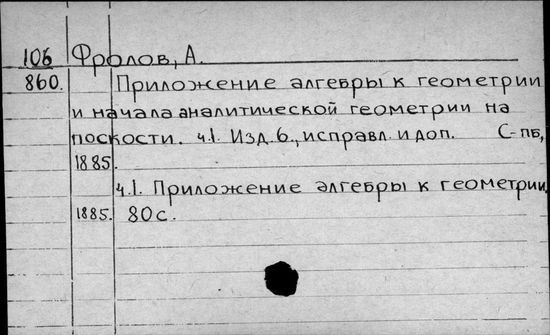 106 Фролов, А.
860. Приложение алгебры к геометрии
и начала аналитической геометрии на
поскости. ч.1. Изд. 6., исправл. и доп. С-пб,
1885.
ч.1. Приложение алгебры к геометрии.
1885. 80 с.